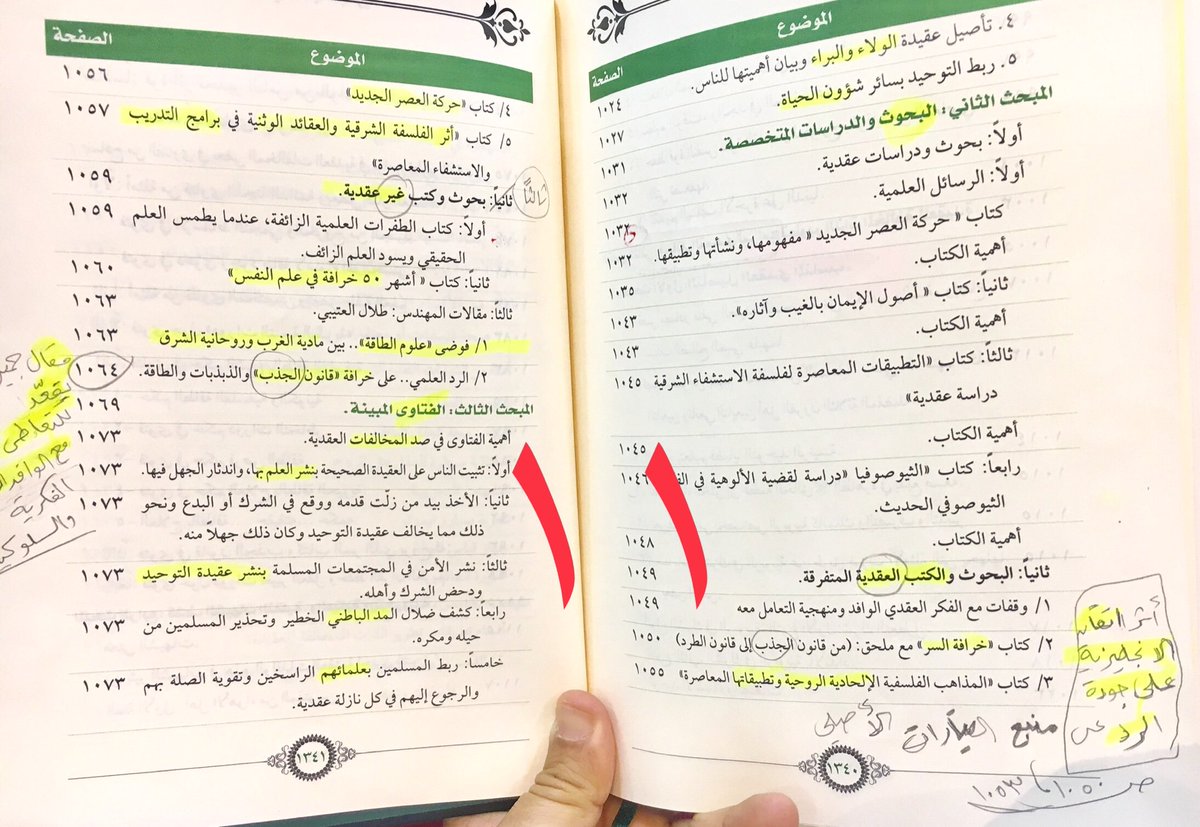 الموضوع
الصفحة
٤. تأصيل عقيدة الولاء والبراء وبيان أهميتها للناس.
١٠٢٤
٥. ربط التوحيد بسائر شؤون الحياة.
١٠٢٧
المبحث الثاني: البحوث والدراسات المتخصصة.
١٠٣١
أولاً: بحوث ودراسات عقدية.
١٠٣٢
أولاً: الرسائل العلمية.
١٠٣٢
كتاب « حركة العصر الجديد « مفهومها، ونشأتها وتطبيقها.
١٠٣٢
أهمية الكتاب.
١٠٣٥
ثانياً: كتاب « أصول الإيمان بالغيب وآثاره».
١٠٤٣
أهمية الكتاب.
١٠٤٣
ثالثاً: كتاب «التطبيقات المعاصرة لفلسفة الاستشفاء الشرقية
١٠٤٥
دراسة عقدية»
أهمية الكتاب.
١٠٤٥
رابعاً: كتاب «الثيوصوفيا «دراسة لقضية الألوهية في
١٠٤٦
الثيوصوفي الحديث.
أهمية الكتاب.
١٠٤٨
ثانياً: البحوث والكتب العقدية المتفرقة.
١٠٤٩
١/ وقفات مع الفكر العقدي الوافد ومنهجية التعامل معه
١٠٤٩
٢/ كتاب «خرافة السر» مع ملحق: (من قانون الجذب إلى قانون الطرد)
١٠٥٠
٣/ كتاب «المذاهب الفلسفية الإلحادية الروحية وتطبيقاتها المعاصرة»
١٠٥٥
أثر اتقان
الانجليزية
على جودة
الرد على
منبع التيارات الأصلي
ص ١٠٥٠
١٠٥٣
١٣٤٠
الموضوع
الصفحة
٤/ كتاب «حركة العصر الجديد»
١٠٥٦
٥/ كتاب «أثر الفلسفة الشرقية والعقائد الوثنية في برامج التدريب
١٠٥٧
والاستشفاء المعاصرة»
ثانياً: بحوث وكتب غير عقدية.
١٠٥٩
ثالثاً
أولاً: كتاب الطفرات العلمية الزائفة، عندما يطمس العلم
١٠٥٩
الحقيقي ويسود العلم الزائف.
ثانياً: كتاب « أشهر ٥٠ خرافة في علم النفس»
١٠٦٠
ثالثاً: مقالات المهندس: طلال العتيبي.
١٠٦٣
١/ فوضى «علوم الطاقة».. بين مادية الغرب وروحانية الشرق
١٠٦٣
٢/ الرد العلمي.. على خرافة «قانون الجذب» والذبذبات والطاقة.
١٠٦٤
المبحث الثالث: الفتاوى المبينة.
١٠٦٩
أهمية الفتاوى في صد المخالفات العقدية.
١٠٧٣
أولاً: تثبيت الناس على العقيدة الصحيحة بنشر العلم بها، واندثار الجهل فيها.
١٠٧٣
ثانياً: الأخذ بيد من زلّت قدمه ووقع في الشرك أو البدع ونحو
١٠٧٣
ذلك مما يخالف عقيدة التوحيد وكان ذلك جهلاً منه.
ثالثاً: نشر الأمن في المجتمعات المسلمة بنشر عقيدة التوحيد
١٠٧٣
ودحض الشرك وأهله.
رابعاً: كشف ضلال المد الباطني الخطير وتحذير المسلمين من
١٠٧٣
حيله ومكره.
خامساً: ربط المسلمين بعلمائهم الراسخين وتقوية الصلة بهم
١٠٧٣
والرجوع إليهم في كل نازلة عقدية.
مقال
يقعّد
للتعاطي
مع
الفكرية
١٣٤١